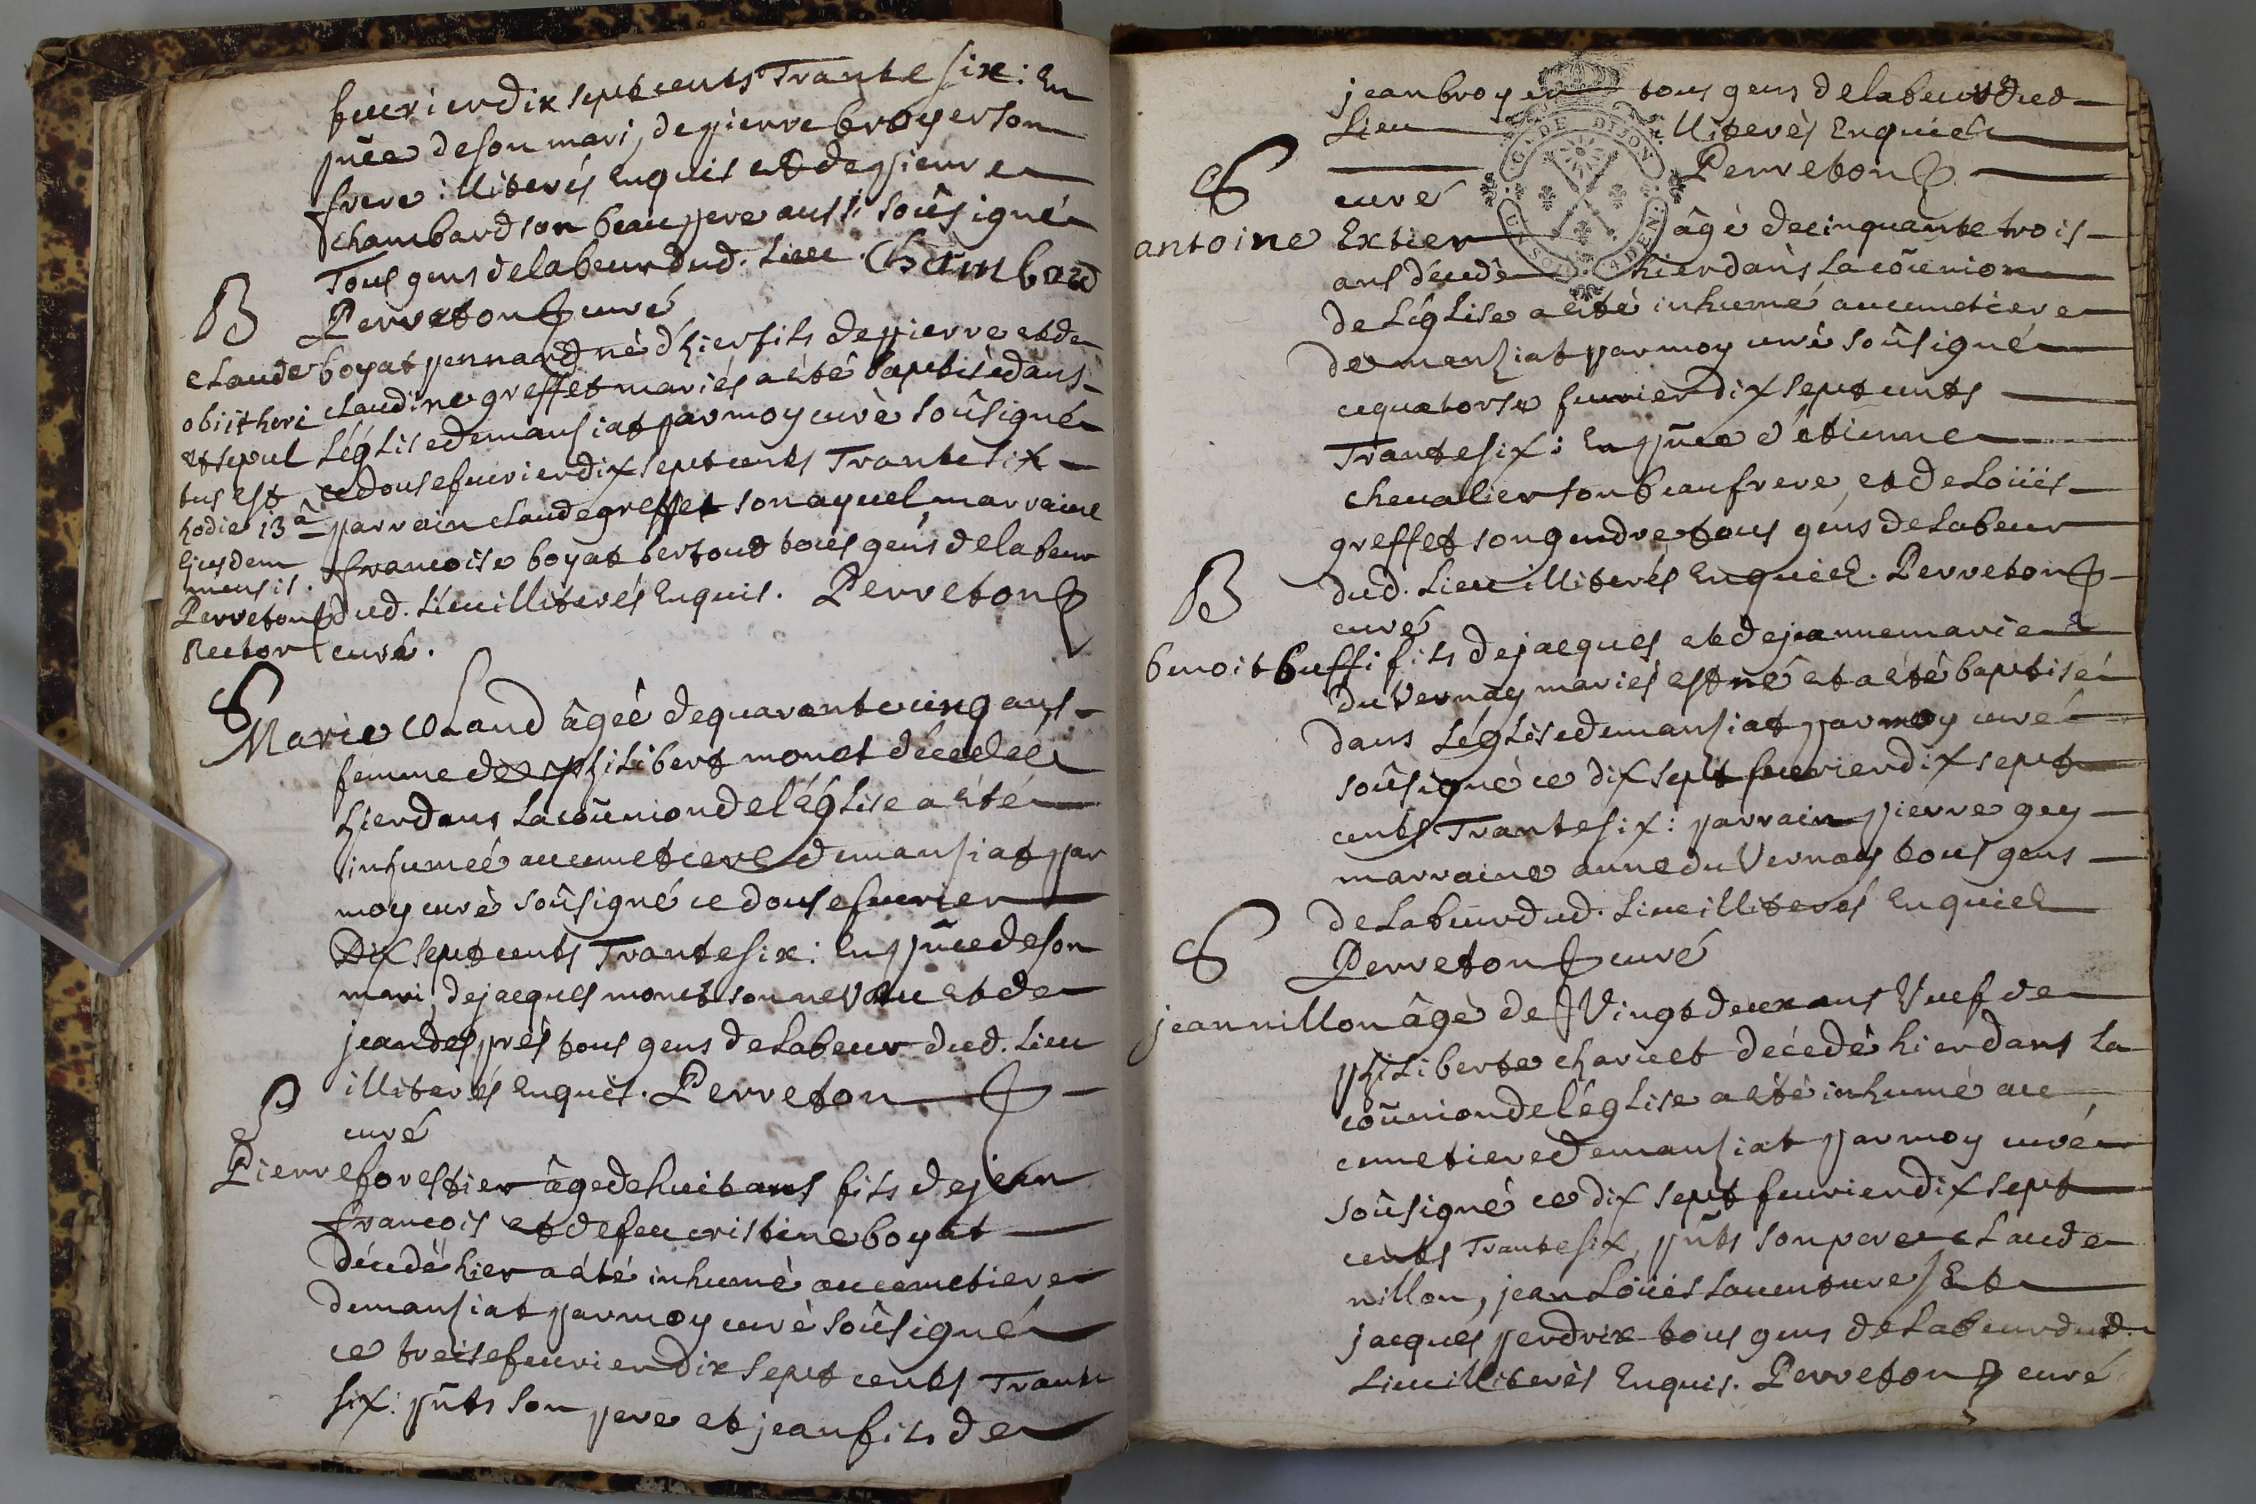 feurier dix sept cents Trante six : En
pñce de son mari, de pierre broyer son
frere illiterés Enquis et de pierre
chambard son beau pere aussi soûsigné
Tous gens de labeur dud. Lieu. Chambard
Perreton curé
B
claude boyat pennard né d'hier fils de pierre et de
claudine greffet mariés a été baptisé dans
L'église de mansiat par moy curé soûsigné
ce douse feurier dix sept cents Trante six
parrain claude greffet son ayuel, marraine
francoise boyat bertoud tous gens de labeur
dud. Lieu illiterés Enquis. Perreton
curé.
obiit heri
et sepul
tus est
hodie 13â
Ejusdem
mensis.
Perreton
Rector
S
Marie coLand âgée de quarante cinq ans
femme de philibert monet décedée
hier dans La coũnion de l'église a été
inhumée au cimetiere de mansiat par
moy curé soûsigné ce douse feurier
Dix sept cents Trante six : En pñce de son
mari, de jacques monet son neveu et de
jean desprès tous gens de Labeur dud. Lieu
illiterés Enquis. Perreton
curé
S
Pierre forestier âgé de huit ans fils de jean
francois et de feu cristine boyat
décedé hier a été inhumé au cemetiere
de mansiat par moy curé soûsigné
ce treise feurier dix sept cents Trante
six : pñts son pere et jean fils de
jean broyer tous gens de labeur dud
Lieu illiterés Enquis
curé Perreton
GN. DE DIJON
S
antoine Extier âgé de cinquante trois
ans décedé hier dans La coũnion
de L'égLise a été inhumé au cimetiere
de mansiat par moy curé soûsigné
ce quatorse feurier dix sept cents
Trante six : En pñce d'étienne
chevalier son beaufrere, et de Loüis
greffet son gendre tous gens de Labeur
dud. Lieu illiterés Enquis. Perreton
curé
B
benoit buffi fils de jacques et de jeanne marie
du Vernay mariés est né et a été baptisé
dans L'égLise de mansiat par moy curé
soûsigné ce dix sept feurier dix sept
cents Trante six : parrain pierre gey
marraine anne du Vernay tous gens
de Labeur dud. Lieu illiterés Enquis
Perreton curé
S
jean nillon âgé de Vingt deux ans Veuf de
philiberte charvet décedé hier dans La
coũnion de l'égLise a été inhumé au
cemetiere de mansiat par moy curé
soûsigné ce dix sept feurier dix sept
cents Trante six, pñts son pere claude
nillon, jean Loüis Lauenture, Et
jacques perdrix tous gens de Labeur dud.
Lieu illiterés Enquis. Perreton curé